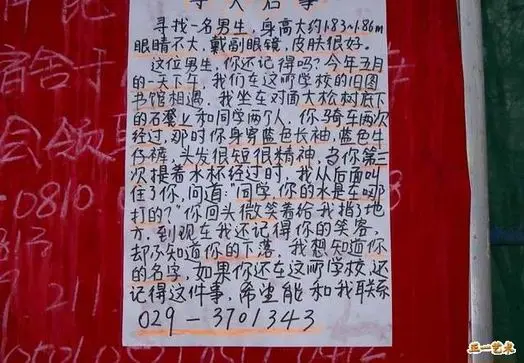 寻人启事
寻找一名男生，身高大约1.83~1.86m
眼睛不大，戴副眼镜，皮肤很好。
这位男生，你还记得吗？今年五月
的一天下午，我们在这所学校的旧图
书馆相遇。我坐在对面大松树底下
的石凳上和同学两个人，你骑车两次
经过，那时你身穿蓝色长袖，蓝色牛
仔裤，头发很短很精神，当你第三
次提着水杯经过时，我从后面叫
住了你，问道：“同学，你的水是在哪
打的？”你回头微笑着给我指了地
方，到现在我还记得你的笑容，
却不知道你的下落，我想知道你
的名字，如果你还在这所学校，还
记得这件事，希望能和我联系
029-3701343
宿舍
会
领
0810
813
正一艺术